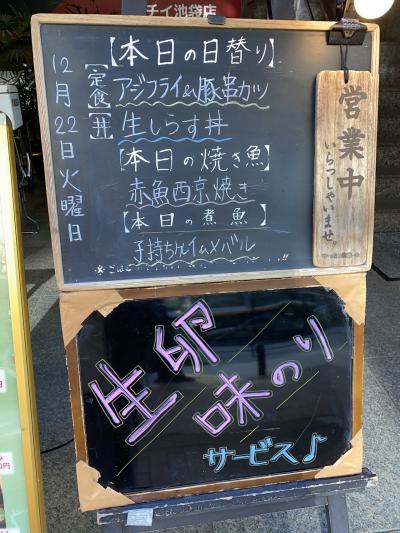 チイ池袋店
【本日の日替り】
12月22日火曜日
【定食】アジフライ&豚串カツ
【丼】生しらす丼
【本日の焼き魚】
赤魚西京焼き
【本日の煮魚】
子持ちタイムメバル
営業中
いらっしゃいませ
生卵
味のり
サービス♪